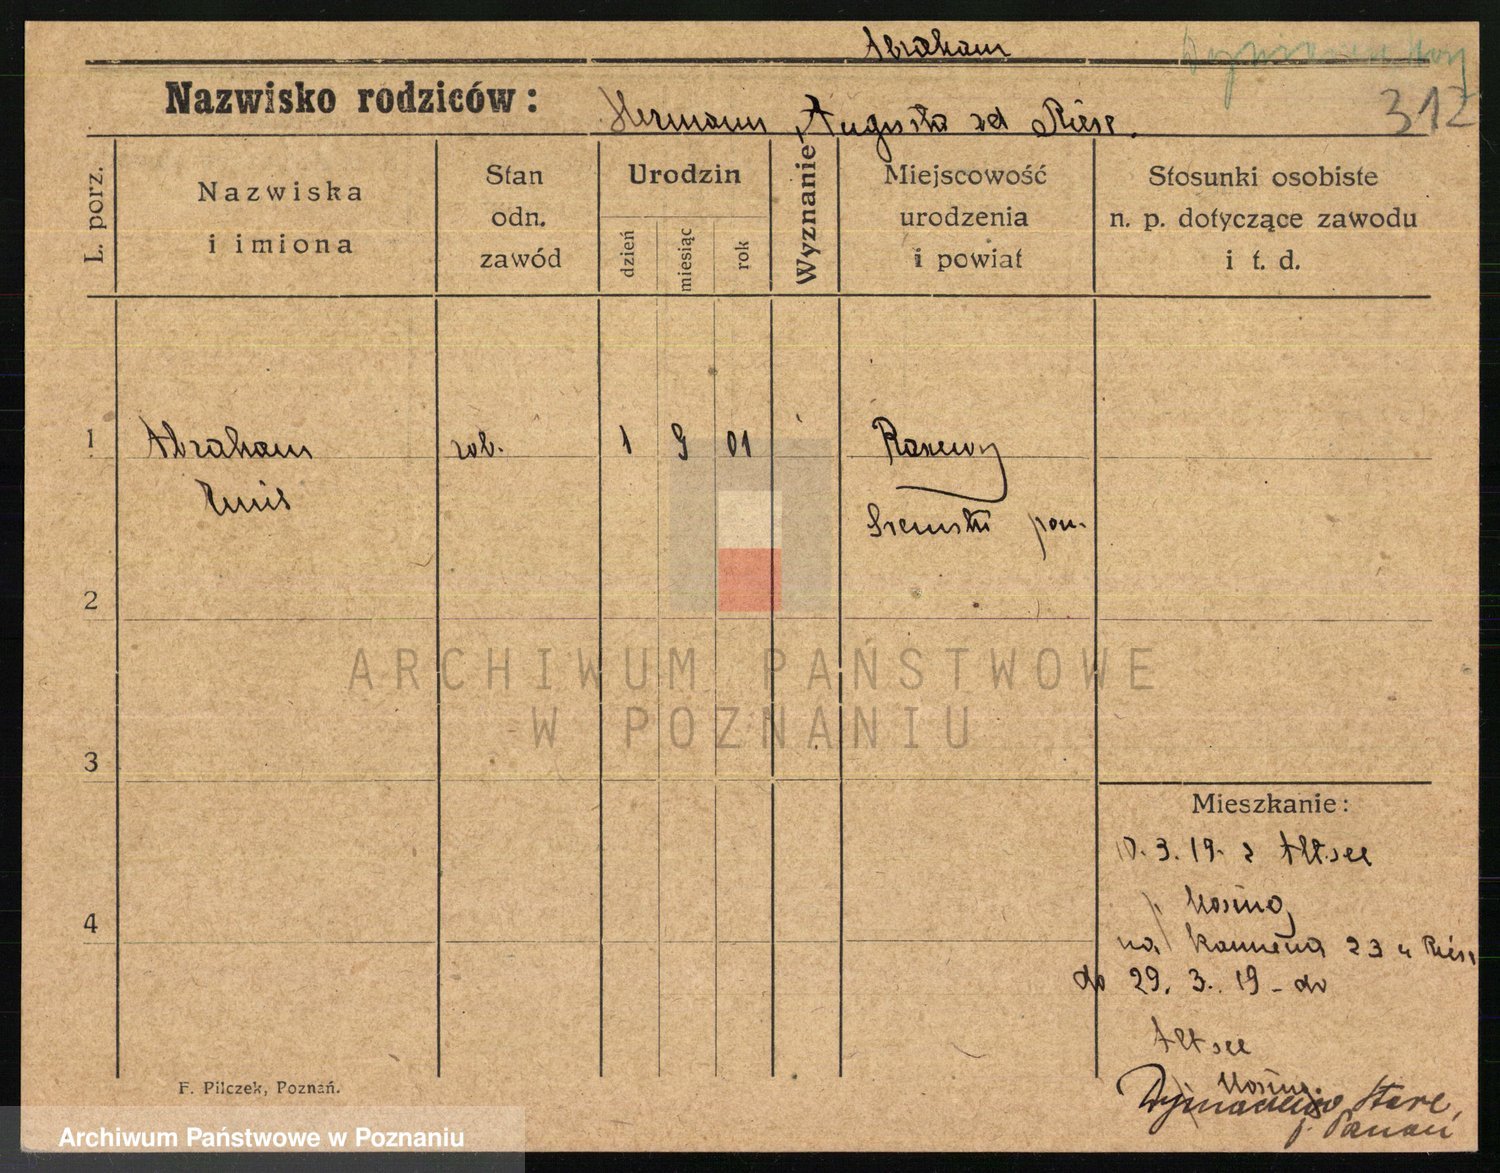 Abraham
312
Nazwisko rodziców:
Hermann, Augusta zd Riese.
L. porz.
Nazwiska
i imiona
Stan
odn.
zawód
Urodzin
dzień
miesiąc
rok
Wyznanie
Miejscowość
urodzenia
i powiat
Stosunki osobiste
n. p. dotyczące zawodu
i t. d.
1 Abraham rob. 1 9 01
Sremski pow.
2
ARCHIWUM PAŃSTWOWE
W POZNANIU
3
Mieszkanie:
10.3.19. z Altsee
p. Mosina
4
na 23 u Riese
do 29. 3. 19 - do
Altsee
Mosina.
Stare,
F. Pilczek, Poznań.
Archiwum Państwowe w Poznaniu